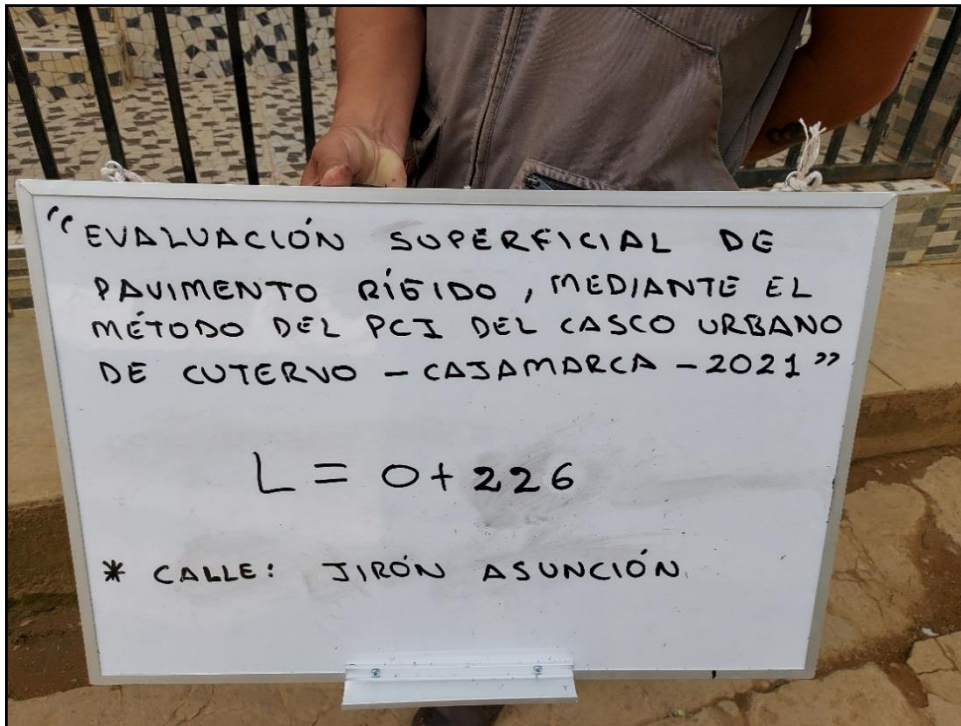 "EVALUACIÓN SUPERFICIAL DE
PAVIMENTO RÍGIDO, MEDIANTE EL
MÉTODO DEL PCI DEL CASCO URBANO
DE CUTERVO - CAJAMARCA - 2021"
L = 0+226
* CALLE: JIRÓN ASUNCIÓN